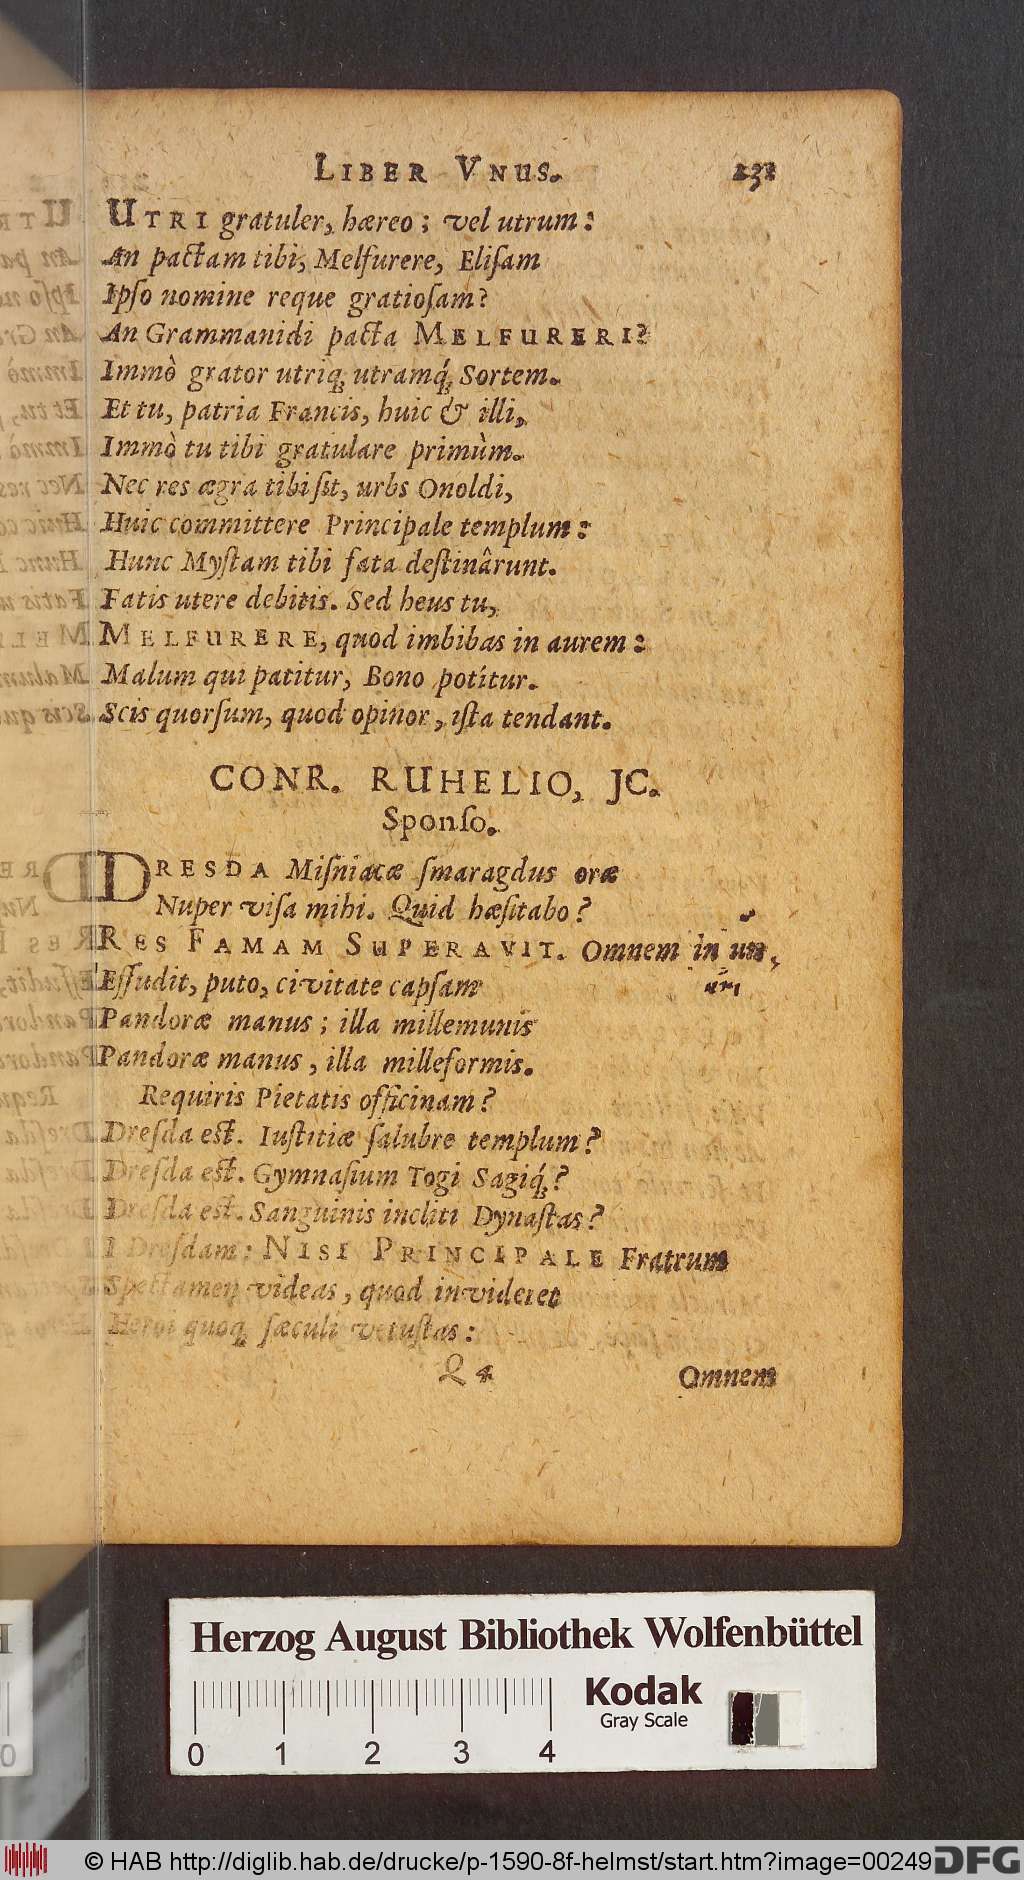 LIBER VNUS. 232
UTRI gratuler, hæreo; vel utrum:
An pactam tibi, Melfurere, Elisam
Ipſo nomine reque gratioſam?
An Grammanidi pacta MELFURERI?
Immò grator utriq; utramq́; Sortem.
Et tu, patria Francis, huic & illi,
Immò tu tibi gratulare primùm.
Nec res ægra tibi ſit, urbs Onoldi,
Huic committere Principale templum:
Hunc Myſtam tibi fata deſtinârunt.
Fatis utere debitis. Sed heus tu,
MELFURERE, quod imbibas in aurem:
Malum qui patitur, Bono potitur.
Scis quorſum, quod opinor, iſta tendant.
CONR. RUHELIO, JC.
Sponſo.
DRESDA Miſniacæ ſmaragdus oræ
Nuper viſa mihi. Quid hæſitabo?
RES FAMAM SUPERAVIT. Omnem in
Effudit, puto, civitate capſam
Pandoræ manus; illa millemunis
Pandoræ manus, illa milleformis.
Requiris Pietatis officinam?
Dreſda eſt. Iuſtitiæ ſalubre templum?
Dreſda eſt. Gymnaſium Togi Sagiq́;?
Dreſda eſt. Sanguinis incliti Dynaſtas?
I Dreſdam: NISI PRINCIPALE Fratrum
Spectamen videas, quod invideret
Heroi quoq; ſæculi vetuſtas:
Q 4 Omnem
Herzog August Bibliothek Wolfenbüttel
Kodak
Gray Scale
0 1 2 3 4
© HAB http://diglib.hab.de/drucke/p-1590-8f-helmst/start.htm?image=00249
DFG